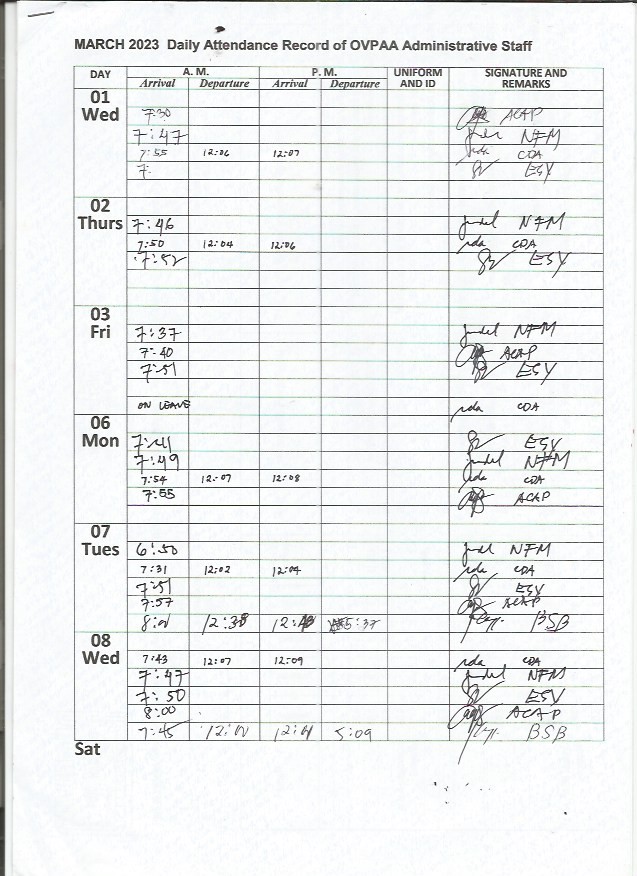 MARCH 2023 Daily Attendance Record of OVPAA Administrative Staff
DAY A. M. P. M. UNIFORM AND ID SIGNATURE AND REMARKS
Arrival Departure Arrival Departure
01 Wed
7:30 ACAP
7:47 NFM
7:55 12:06 12:07 CDA
7: ESY
02 Thurs
7:46 NFM
7:50 12:04 12:06 CDA
7:52 ESY
03 Fri
7:37 NFM
7:40 ACAP
7:51 ESY
ON LEAVE CDA
06 Mon
7:41 ESY
7:49 NFM
7:54 12:07 12:08 CDA
7:55 ACAP
07 Tues
6:50 NFM
7:31 12:02 12:04 CDA
7:51 ESY
7:57 ACAP
12:38 5:37 BSB
08 Wed
7:43 12:07 12:09 CDA
7:47 NFM
7:50 ESY
8:00 ACAP
7:45 5:09 BSB
Sat